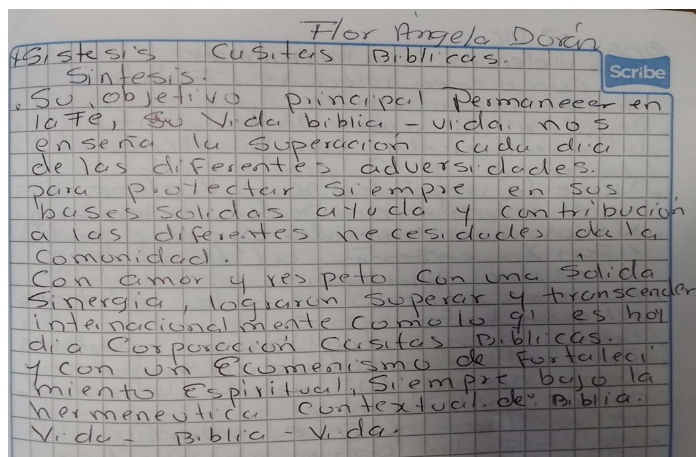 Flor Angela Dorán
Sistesis Casitas Biblicas.
Sintesis.
Scribe
Su objetivo principal Permanecer en
la Fe, su Vida biblia - vida. nos
enseña la Superación cada dia
de las diferentes adversidades.
para proyectar Siempre en sus
bases solidas ayuda y contribución
a las diferentes necesidades de la
Comunidad.
Con amor y respeto con una Solida
Sinergia, lograron Superar y transcender
internacionalmente como lo q' es hoy
dia Corporación Casitas Biblicas.
y con un Ecumenismo de Fortaleci
miento Espiritual, Siempre bajo la
hermeneutica Contextual. de: Biblia.
Vida - Biblia - Vida.